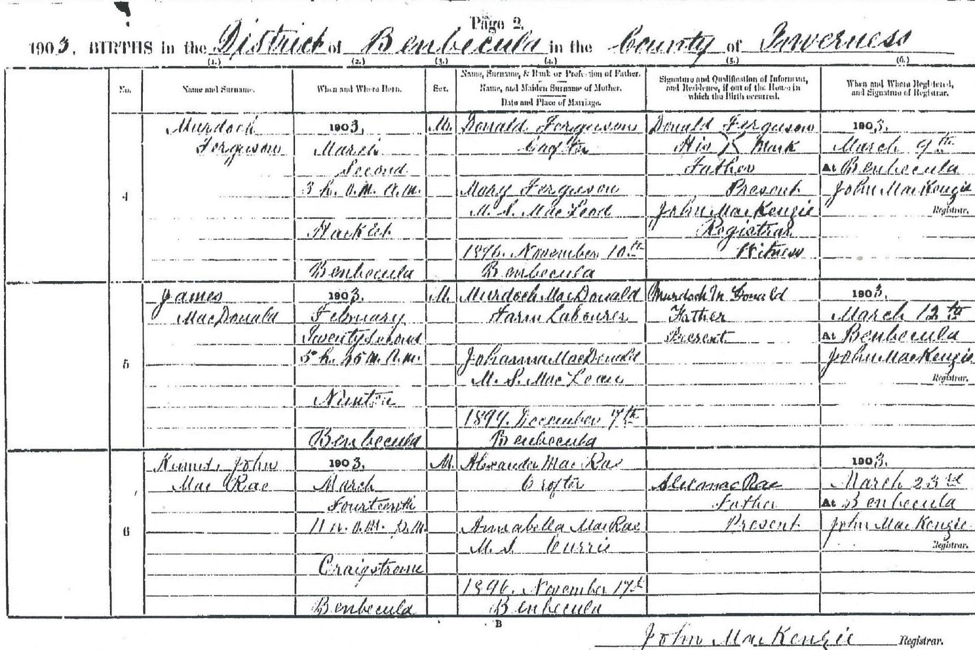 Page 2.
1903. BIRTHS in the District of Benbecula in the County of Inverness
(1.) (2.) (3.) (4.) (5.) (6.)
No. Name and Surname. When and Where Born. Sex. Name, Surname, & Rank or Profession of Father. Name, and Maiden Surname of Mother. Date and Place of Marriage. Signature and Qualification of Informant, and Residence, if out of the House in which the Birth occurred. When and Where Registered, and Signature of Registrar.
4
Murdoch
Ferguson
1903.
March
Second
3 h. 0 m. A.m.
Hacklet
Benbecula
M.
Donald Ferguson
Mary Ferguson
M. S. MacLeod
1896. November 10th
Benbecula
Donald Ferguson
His X Mark
Father
Present
John MacKenzie
Registrar
Witness
1903.
March 9th
At Benbecula
John MacKenzie
Registrar.
5
James
MacDonald
1903.
February
5 h. A.m.
Nunton
Benbecula
M.
Murdoch MacDonald
Farm Labourer
Johanna MacDonald
M. S. MacLean
December 17th
Benbecula
Father
Present
1903.
March 12th
At Benbecula
John MacKenzie
Registrar.
6
John
Mac Rae
1903.
March
Fourteenth
11 h. 0 m. P.M.
Benbecula
M.
Alexander Mac Rae
Crofter
Annabella MacRae
M. S. Currie
1896. November 17th
Benbecula
Father
Present
1903.
March 23rd
At Benbecula
John MacKenzie
Registrar.
B
John MacKenzie Registrar.